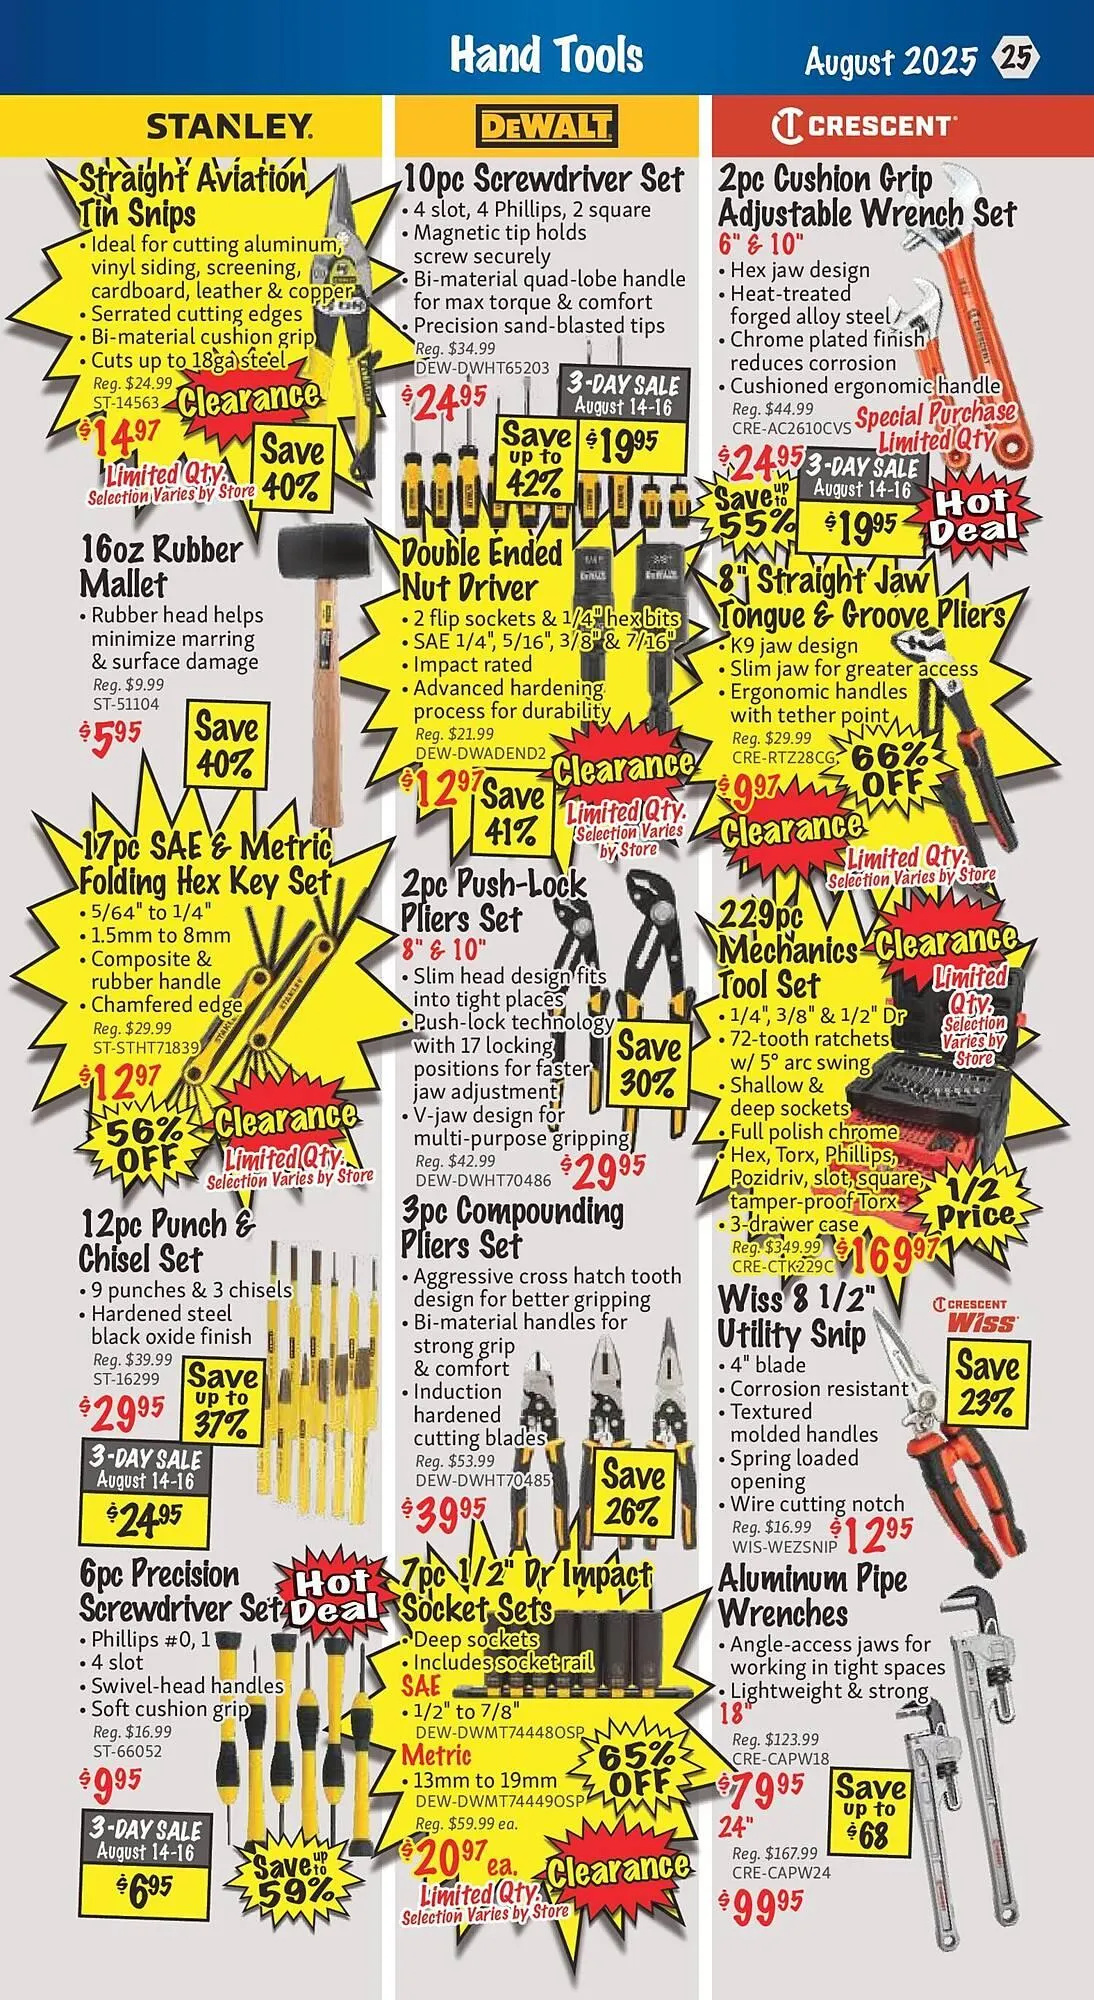 Hand Tools
August 2025
25
STANLEY
Straight Aviation
Tin Snips
• Ideal for cutting aluminum,
vinyl siding, screening,
cardboard, leather & copper
• Serrated cutting edges
• Bi-material cushion grip
• Cuts up to 18ga steel
Reg. $24.99
ST-14563
Clearance
$14.97
Limited Qty.
Selection Varies by Store
Save
40%
16oz Rubber
Mallet
• Rubber head helps
minimize marring
& surface damage
Reg. $9.99
ST-51104
$5.95
Save
40%
17pc SAE & Metric
Folding Hex Key Set
• 5/64" to 1/4"
• 1.5mm to 8mm
• Composite &
rubber handle
• Chamfered edge
Reg. $29.99
ST-STHT71839
$12.97
56%
OFF
Clearance
Limited Qty.
Selection Varies by Store
12pc Punch &
Chisel Set
• 9 punches & 3 chisels
• Hardened steel
black oxide finish
Reg. $39.99
ST-16299
$29.95
Save
up to
37%
3-DAY SALE
August 14-16
$24.95
6pc Precision
Screwdriver Set
Hot
Deal
• Phillips #0, 1
• 4 slot
• Swivel-head handles
• Soft cushion grip
Reg. $16.99
ST-66052
$9.95
3-DAY SALE
August 14-16
$6.95
Save up to
59%
DEWALT
10pc Screwdriver Set
• 4 slot, 4 Phillips, 2 square
• Magnetic tip holds
screw securely
• Bi-material quad-lobe handle
for max torque & comfort
• Precision sand-blasted tips
Reg. $34.99
DEW-DWHT65203
$24.95
3-DAY SALE
August 14-16
$19.95
Save
up to
42%
Double Ended
Nut Driver
• 2 flip sockets & 1/4" hex bits
• SAE 1/4", 5/16", 3/8" & 7/16"
• Impact rated
• Advanced hardening
process for durability
Reg. $21.99
DEW-DWADEND2
$12.97
Save
41%
Clearance
Limited Qty.
Selection Varies
by Store
2pc Push-Lock
Pliers Set
8" & 10"
• Slim head design fits
into tight places
• Push-lock technology
with 17 locking
positions for faster
jaw adjustment
• V-jaw design for
multi-purpose gripping
Reg. $42.99
DEW-DWHT70486
$29.95
Save
30%
3pc Compounding
Pliers Set
• Aggressive cross hatch tooth
design for better gripping
• Bi-material handles for
strong grip
& comfort
• Induction
hardened
cutting blades
Reg. $53.99
DEW-DWHT70485
$39.95
Save
26%
7pc 1/2" Dr Impact
Socket Sets
• Deep sockets
• Includes socket rail
SAE
• 1/2" to 7/8"
DEW-DWMT74448OSP
Metric
• 13mm to 19mm
DEW-DWMT74449OSP
Reg. $59.99 ea.
$20.97 ea.
65%
OFF
Clearance
Limited Qty.
Selection Varies by Store
CRESCENT
2pc Cushion Grip
Adjustable Wrench Set
6" & 10"
• Hex jaw design
• Heat-treated
forged alloy steel
• Chrome plated finish
reduces corrosion
• Cushioned ergonomic handle
Reg. $44.99
CRE-AC2610CVS
Special Purchase
Limited Qty
$24.95
3-DAY SALE
August 14-16
$19.95
Save up to
55%
Hot
Deal
8" Straight Jaw
Tongue & Groove Pliers
• K9 jaw design
• Slim jaw for greater access
• Ergonomic handles
with tether point
Reg. $29.99
CRE-RTZ28CG
$9.97
66%
OFF
Clearance
Limited Qty.
Selection Varies by Store
229pc
Mechanics
Tool Set
Clearance
Limited
Qty.
Selection
Varies by
Store
• 1/4", 3/8" & 1/2" Dr
• 72-tooth ratchets
w/ 5° arc swing
• Shallow &
deep sockets
• Full polish chrome
• Hex, Torx, Phillips,
Pozidriv, slot, square,
tamper-proof Torx
• 3-drawer case
Reg. $349.99
CRE-CTK229C
$169.97
1/2
Price
Wiss 8 1/2"
Utility Snip
CRESCENT
Wiss
• 4" blade
• Corrosion resistant
• Textured
molded handles
• Spring loaded
opening
• Wire cutting notch
Reg. $16.99
WIS-WEZSNIP
$12.95
Save
23%
Aluminum Pipe
Wrenches
• Angle-access jaws for
working in tight spaces
• Lightweight & strong
18"
Reg. $123.99
CRE-CAPW18
$79.95
24"
Reg. $167.99
CRE-CAPW24
$99.95
Save
up to
$68